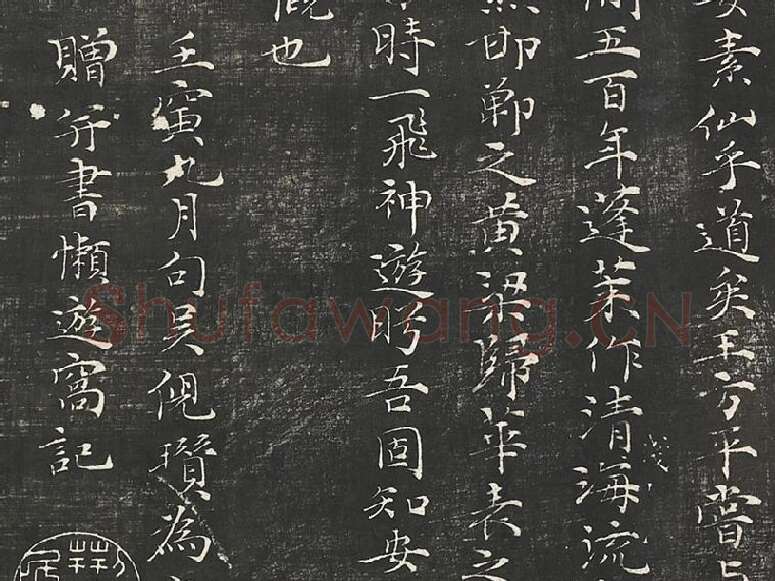 素仙乎道矣王方平嘗
間五百年蓬萊作清海流
淺
邯鄲之黃粱歸華表之
時一飛神遊盻吾固知安
也
壬寅九月句吳倪瓚為
贈并書懶遊窩記
Shufawang.CN